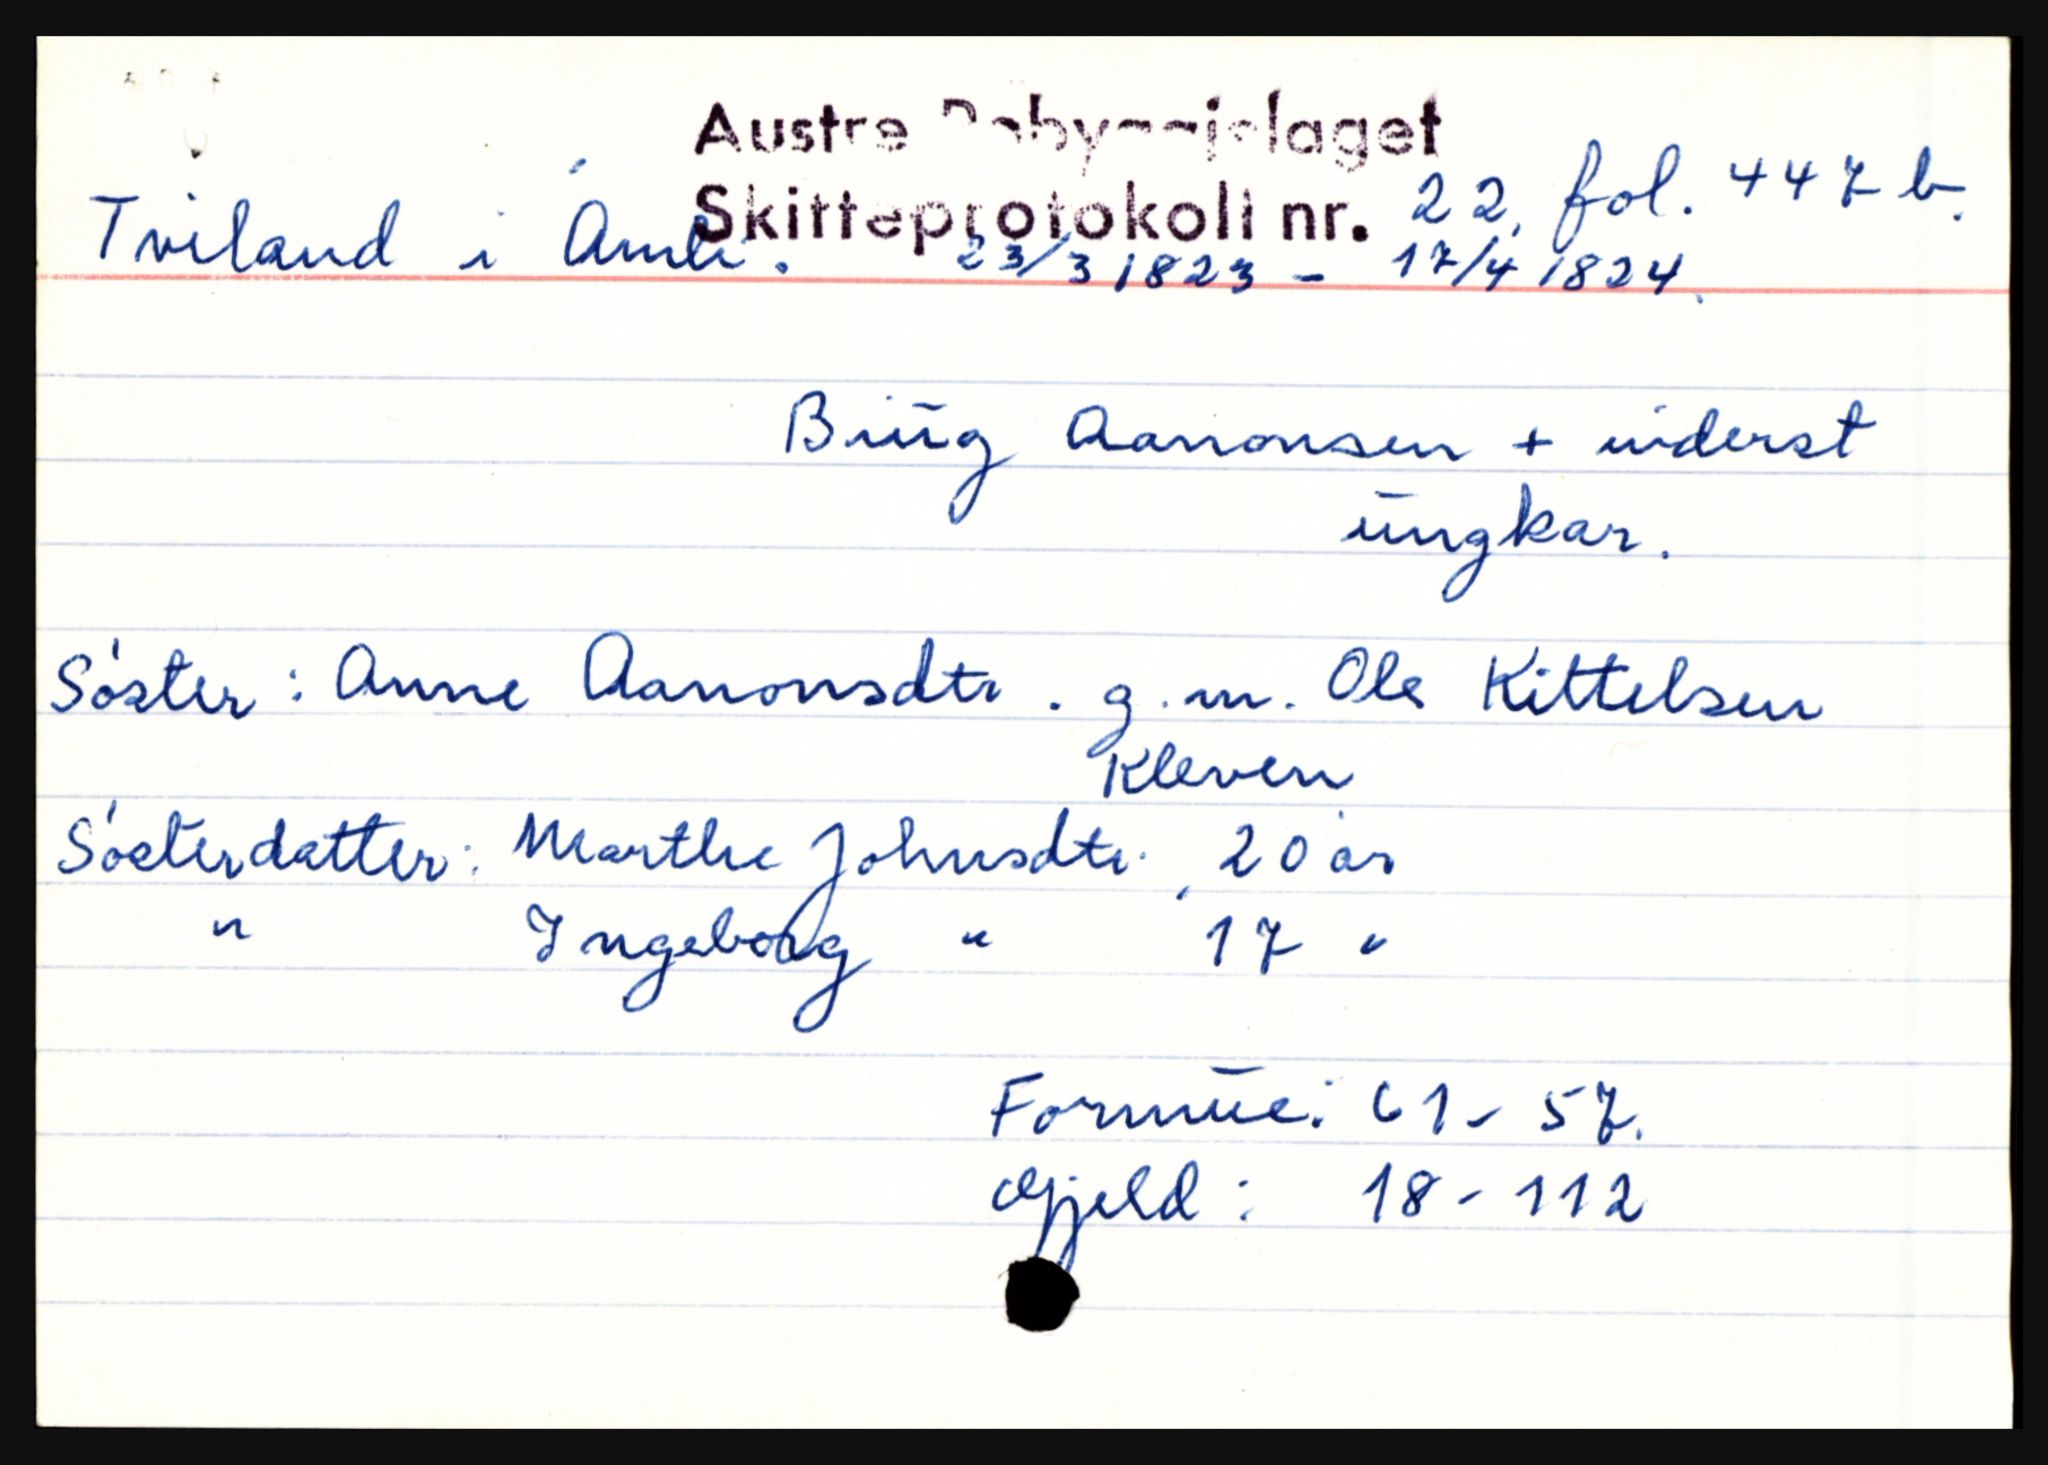 Austre Råbyggjelaget
Skifteprotokoll nr. 22. fol. 447 b.
Tviland i Åmli. 23/3 1823 - 17/4 1824.
Biūg Aanonsen + inderst
ūngkar.
Söster: Anne Aanonsdtr. g.m. Ole Kittelsen
Kleven
Sösterdatter: Marthe Johnsdtr. 20 år
" Ingeborg " 17 "
Formūe: 61 - 57.
Gjeld: 18 - 112